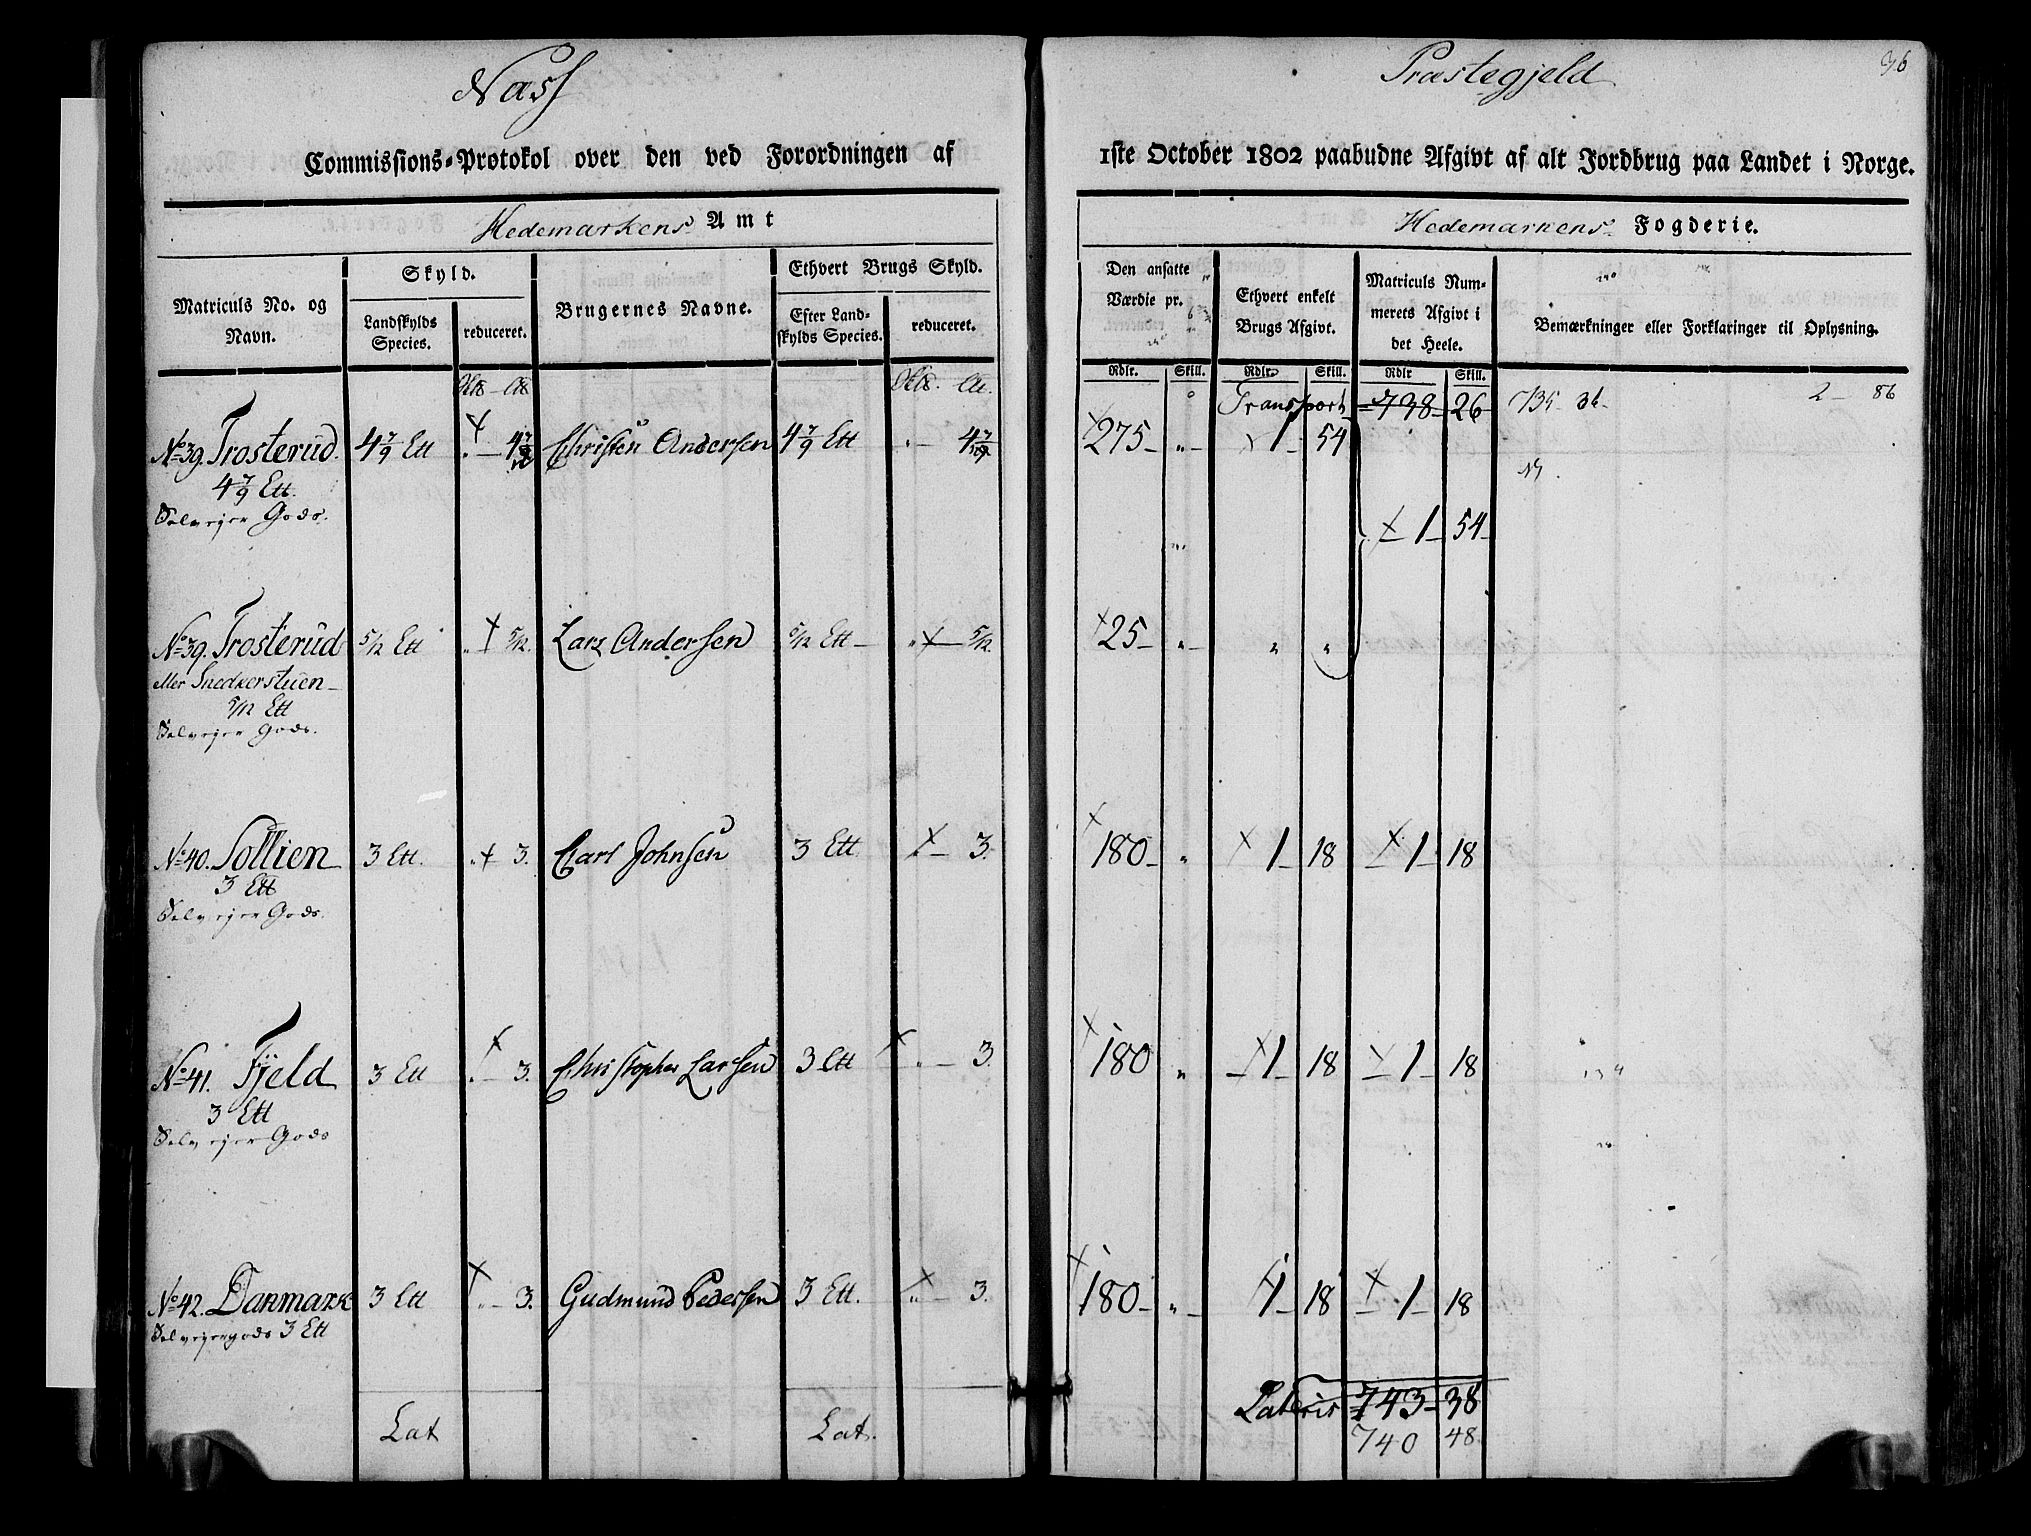 Næss
Præstegjeld
96
Commissions-Protokol over den ved Forordningen af
1ste October 1802 paabudne Afgivt af alt Jordbrug paa Landet i Norge.
Hedemarkens Amt
Hedemarkens Fogderie.
Matriculs No. og Navn.
Skyld.
Landskylds Species.
reduceret.
Brugernes Navne.
Ethvert Brugs Skyld.
Efter Landskylds Species.
reduceret.
Den ansatte Værdie pr.
Ethvert enkelt Brugs Afgivt.
Matriculs Nummerets Afgivt i det Heele.
Bemærkninger eller Forklaringer til Oplysning.
Rdlr. Skill. Rdlr. Skill. Rdlr Skill.
Transport 738 26 735 36 2 86
No 39. Trosterud 4 7/9 Ett " 4 7/9 Christen Andersen 4 7/9 Ett " 4 7/9 275 " 1 54
4 7/9 Ett.
Selvejer Gods.
1 54
No 39. Trosterud 5/12 Ett " 5/12. Lars Andersen 5/12 Ett " 5/12. 25 " " "
eller Snedkerstuen
5/12 Ett
Selvejer Gods.
No 40. Sollien 3 Ett. " 3. Carl Johnsen 3 Ett " 3. 180 " 1 18 1 18
3 Ett
Selvejer Gods.
No 41. Fjeld 3 Ett " 3. Christopher Larsen 3 Ett " 3 180 " 1 18 1 18
3 Ett
Selvejer Gods
No 42. Danmark 3 Ett " 3. Gudmund Pedersen 3 Ett. " 3. 180 " 1 18 1 18
Selvejergods 3 Ett
Lat Lat. Lateris 743 38
740 48